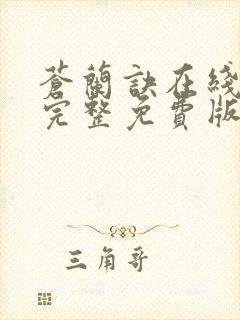 蒼蘭訣在綫
完整免費版
三角哥